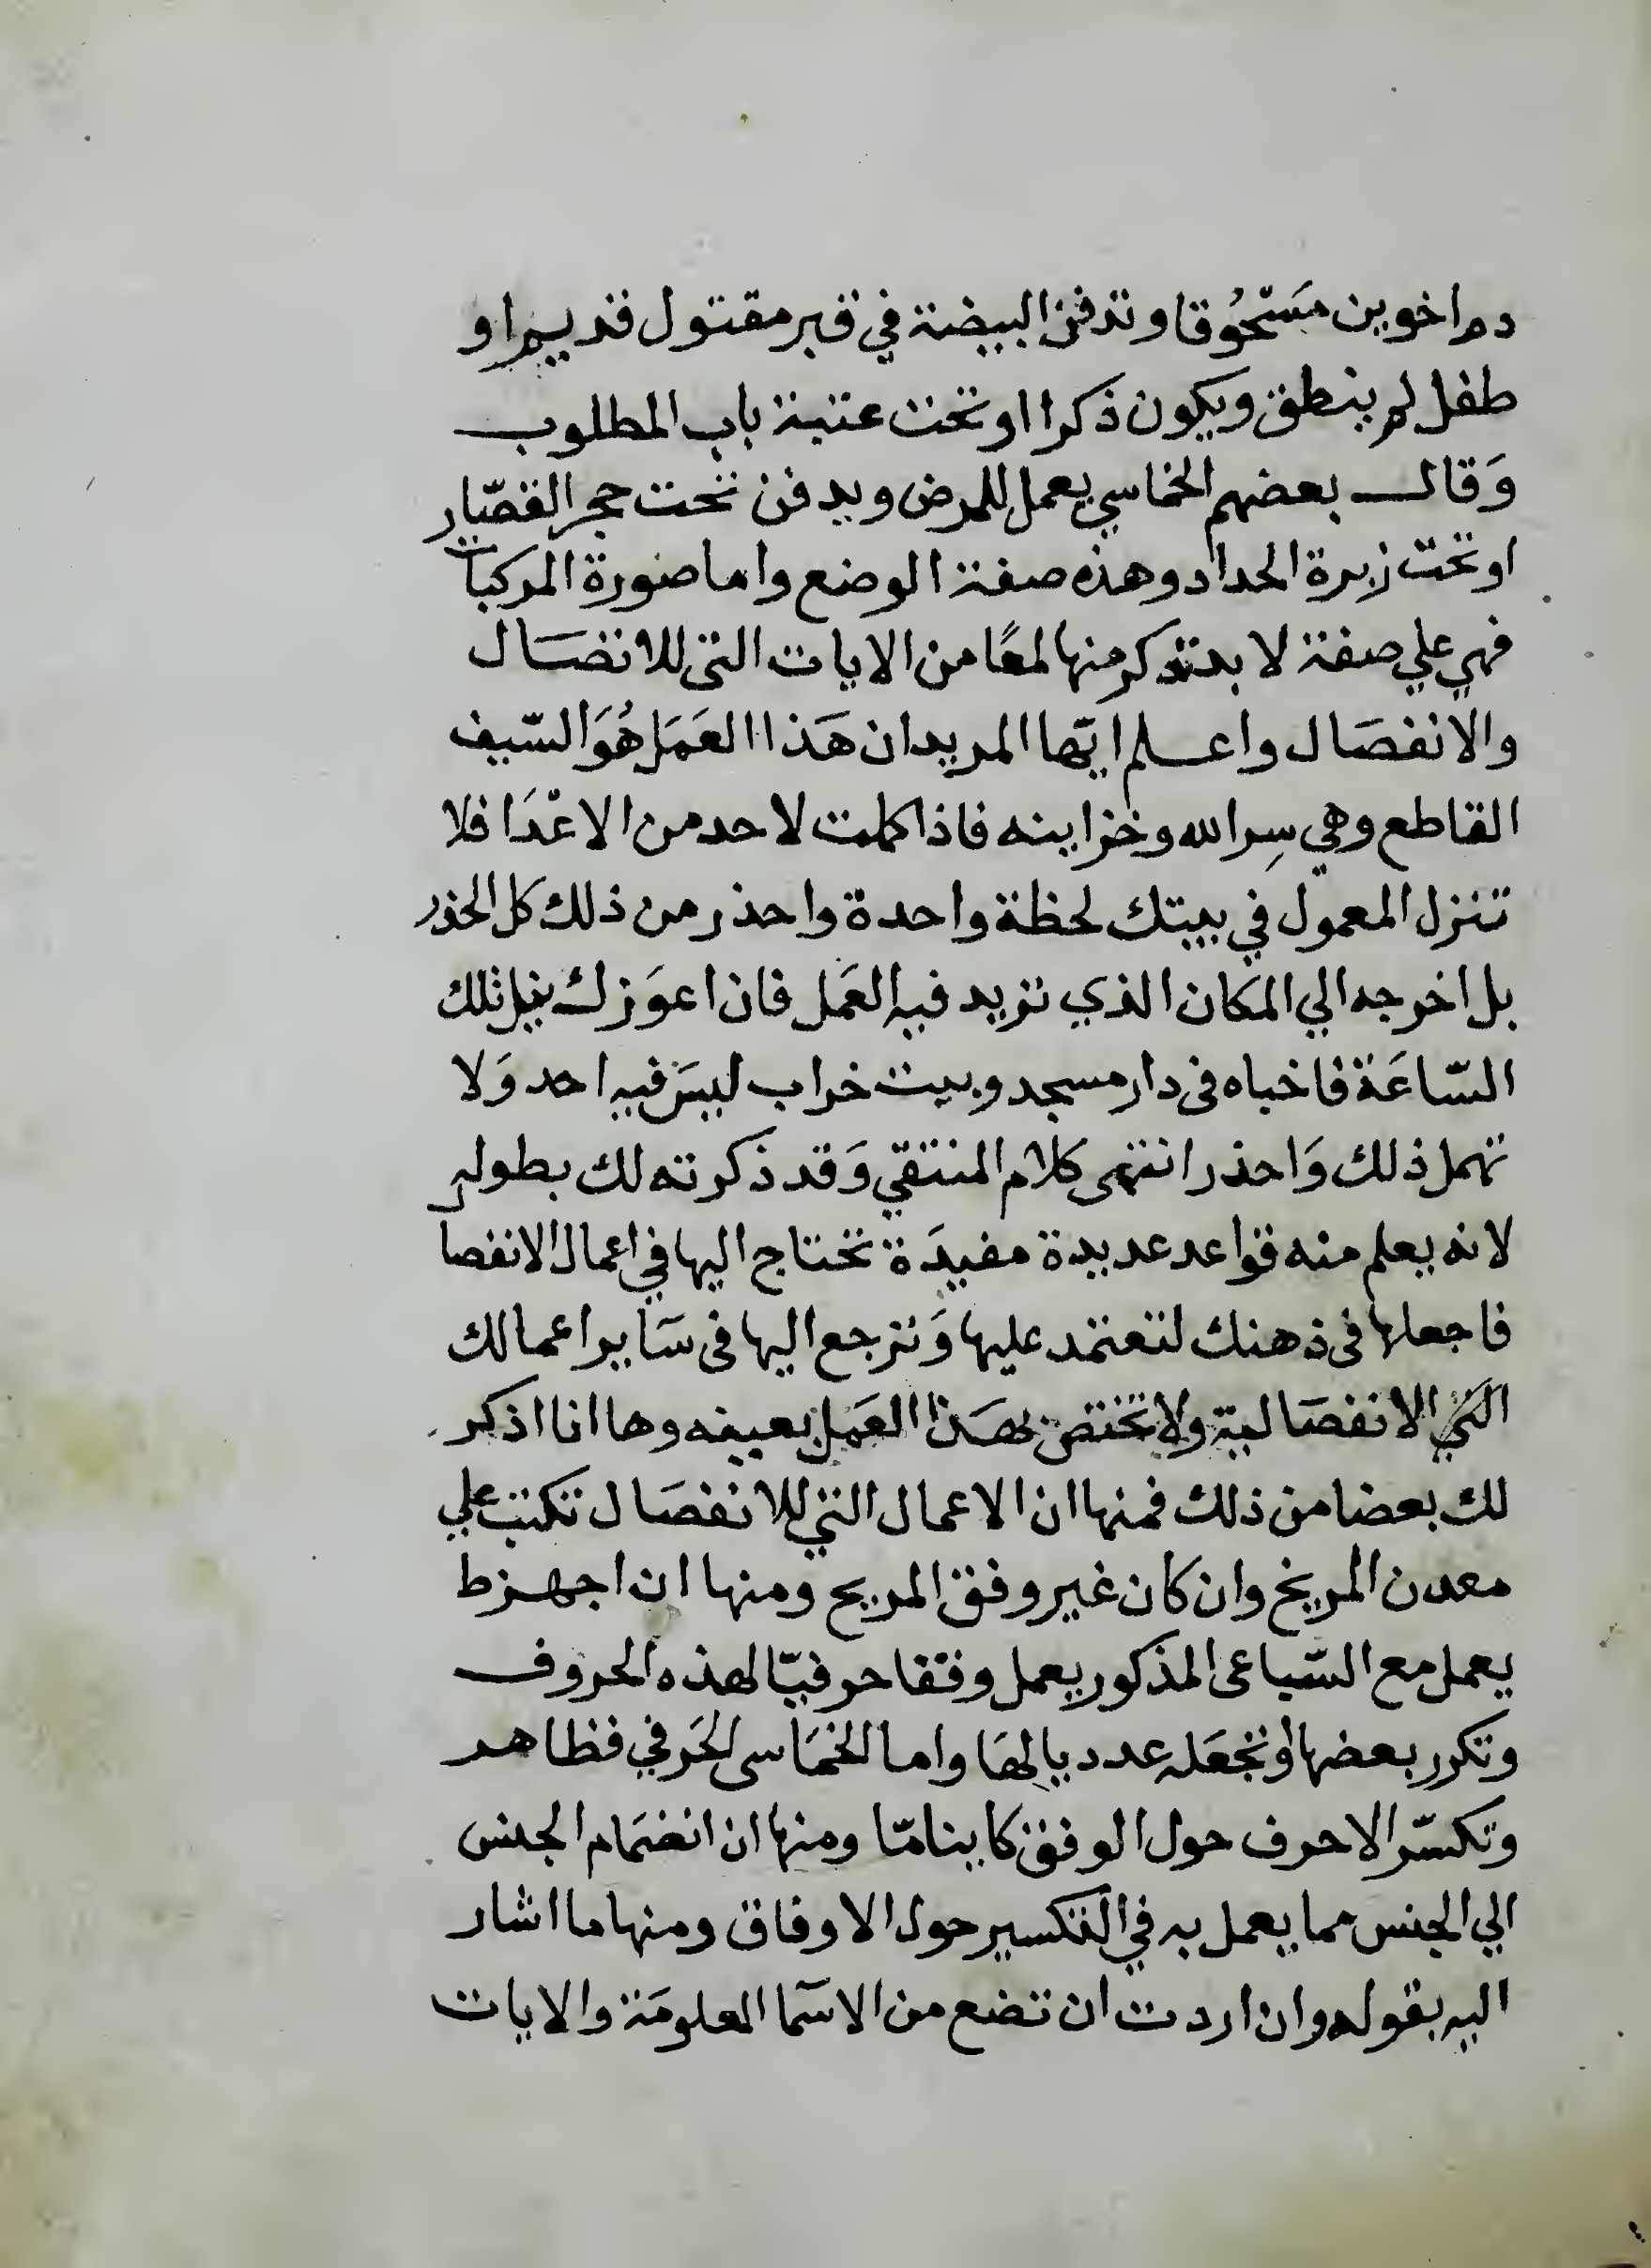 دم اخوين مَسْحُوقا وتدفن البيضة في قبر مقتول قديم او
طفل لم ينطق ويكون ذكرا او تحت عتبة باب المطلوب
وَقال بعضهم الخماسي يعمل للمرض ويدفن تحت حجر القصّار
او تحت زبرة الحداد وهذه صفة الوضع واما صورة المركبات
فهي علي صفة لا بد تذكر منها لمعًا من الايات التى للاتصَال
والانفصَال واعلم ايّها المريد ان هَذا العَمَل هُوَ السّيف
القاطع وهي سِر الله وخزاينه فاذا كملت لاحد من الاعْدَا فلا
تنزل المعمول في بيتك لحظة واحدة واحذر من ذلك كل الحذر
بل اخرجه الي المكان الذي تريد فيه العَمل فان اعوَزك نيل تلك
السّاعَة فاخباه فى دار مسجد وبيت خراب ليسَ فيه احد وَلا
تهمل ذلك وَاحذر انتهى كلام المنتقي وَقد ذكرته لك بطوله
لانه يعلم منه قواعد عديدة مفيدَة تحتاج اليها في اعمال الانفصا
فاجعلها فى ذهنك لتعتمد عليها وَترجع اليها فى سَاير اعمالك
التي الانفصَالية ولا تختص بهَذا العَمل بعينه وها انا اذكر
لك بعضا من ذلك فمنها ان الاعمال التي للانفصَال تكتب علي
معدن المريخ وان كان غير وفق المريح ومنها ان اجهزط
يعمل مع السّباعى المذكور يعمل وفقا حرفيّا لهذه الحروف
وتكرر بعضها او تجعَله عدديا لهَا واما الخمَاسى الحَرفي فظاهر
وتكسّر الاحرف حول الوفق كاينا مّا ومنها ان انضمَام الجنس
الي الجنس مما يعمل به في التكسير حول الاوفاق ومنها ما اشار
اليه بقوله وان اردت ان تضع من الاسمآ المعلومَة والايات